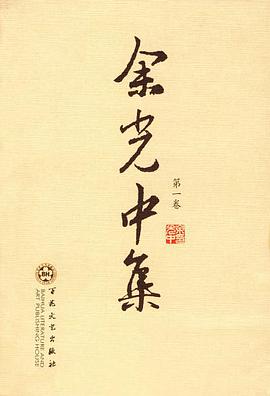 余光中集
第一卷
BH
百花文艺出版社
BAIHUA LITERATURE AND
ART PUBLISHING HOUSE